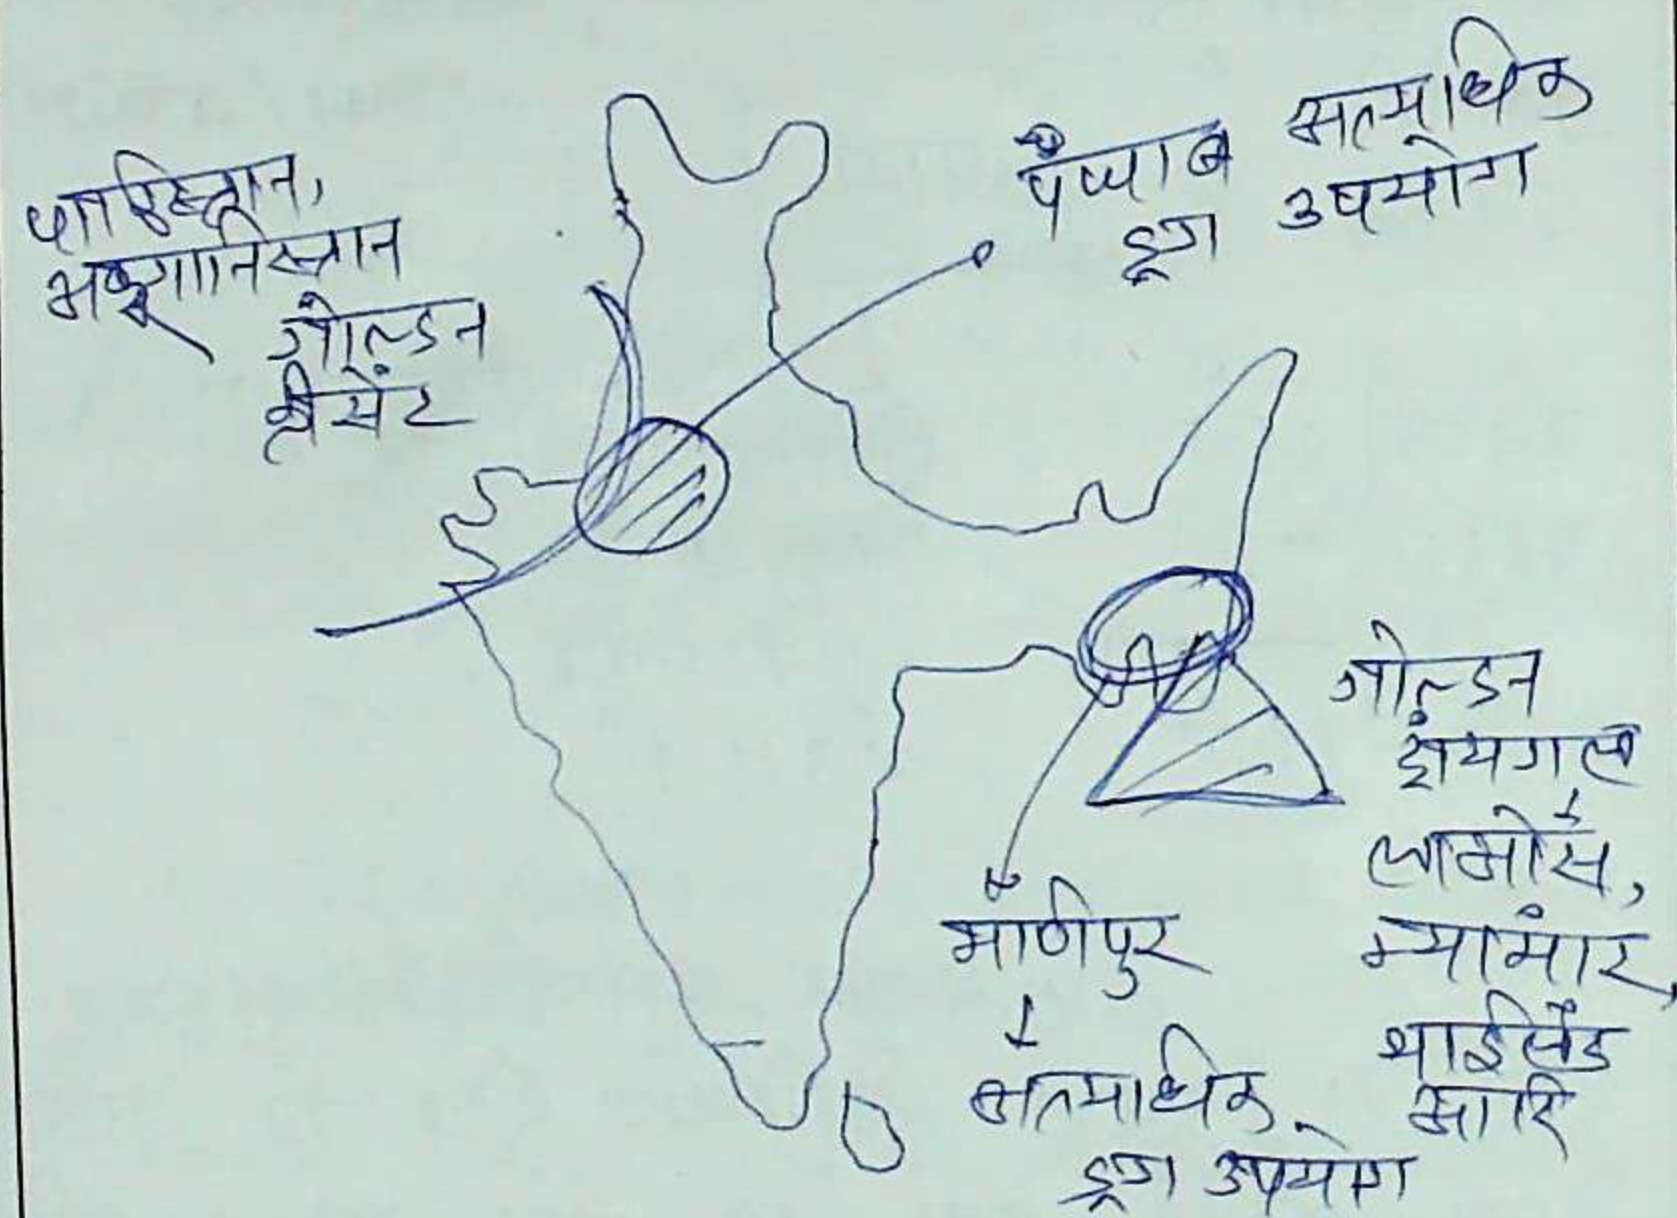 पाकिस्तान,
अफगानिस्तान
गोल्डन
क्रीसेंट
पंजाब अत्यधिक
ड्रग उपयोग
गोल्डन
ट्रायगल
लाओस,
म्यांमार,
थाईलैंड
आदि
मणिपुर
अत्याधिक
ड्रग उपयोग